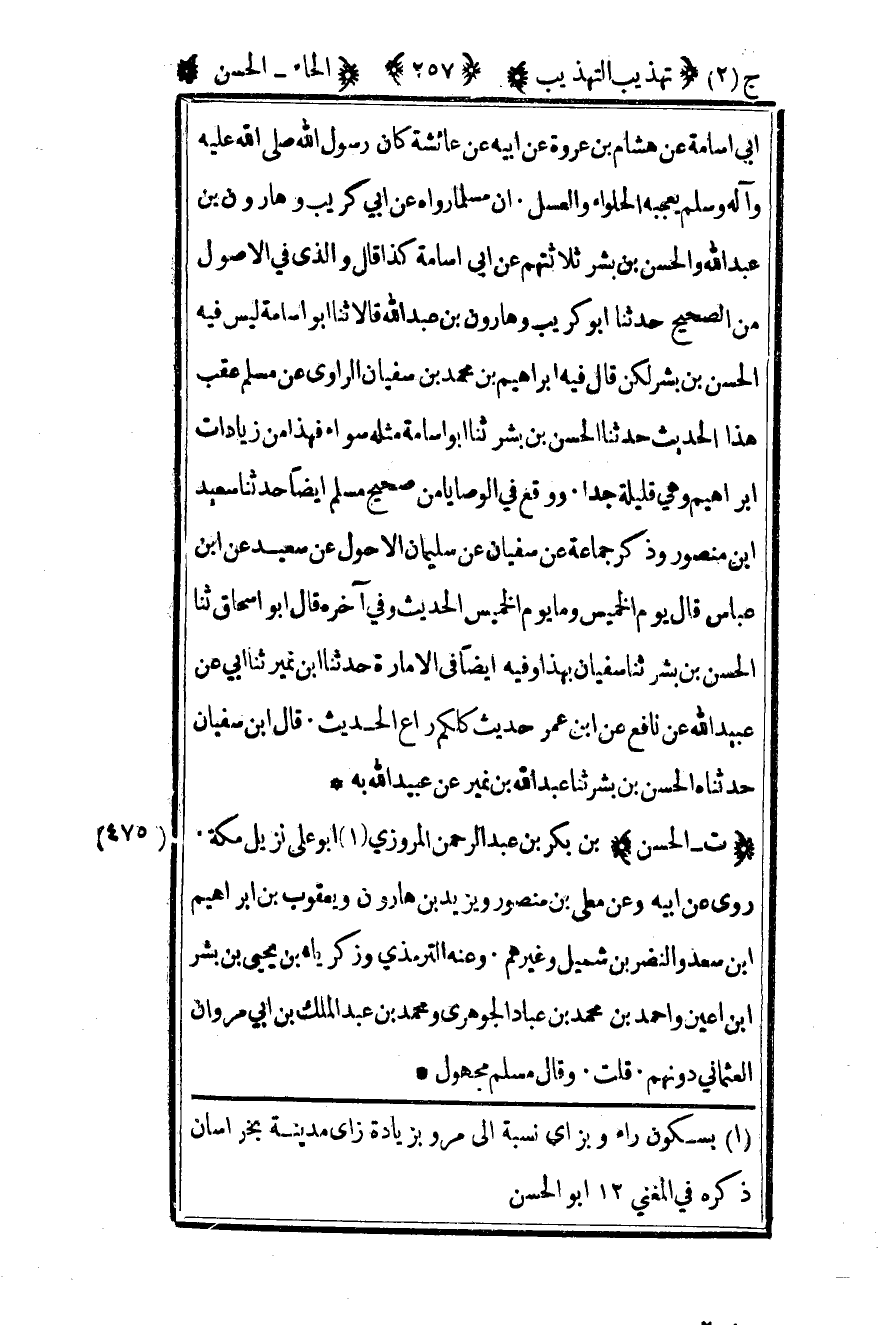 ج (٢) ﴿ تهذيب التهذيب ﴾ ﴿ ٢٥٧ ﴾ ﴿ الحاء ـ الحسن ﴾
ابي اسامة عن هشام بن عروة عن ابيه عن عائشة كان رسول الله صلى الله عليه
وآله وسلم يعجبه الحلواء والعسل · ان مسلما رواه عن ابي كريب وهارون بن
عبدالله والحسن بن بشر ثلاثتهم عن ابى اسامة كذا قال والذى في الاصول
من الصحيح حدثنا ابو كريب وهارون بن عبدالله قالا ثنا ابو اسامة ليس فيه
الحسن بن بشر لكن قال فيه ابراهيم بن محمد بن سفيان الراوى عن مسلم عقب
هذا الحديث حدثنا الحسن بن بشر ثنا ابو اسامة مثله سواء فهذا من زيادات
ابراهيم وهي قليلة جدا · ووقع في الوصايا من صحيح مسلم ايضاً حدثنا سعيد
ابن منصور وذكر جماعة عن سفيان عن سليمان الاحول عن سعيد عن ابن
عباس قال يوم الخميس وما يوم الخميس الحديث وفي آخره قال ابو اسحاق ثنا
الحسن بن بشر ثنا سفيان بهذا وفيه ايضاً فى الامارة حدثنا ابن نمير ثنا ابي عن
عبيد الله عن نافع عن ابن عمر حديث كلكم راع الحديث · قال ابن سفيان
حدثناه الحسن بن بشر ثنا عبدالله بن نمير عن عبيد الله به *
﴿ ت ـ الحسن ﴾ بن بكر بن عبدالرحمن المروزي (١) ابو على نزيل مكة · (٤٧٥)
روى عن ابيه وعن معلى بن منصور ويزيد بن هارون ويعقوب بن ابراهيم
ابن سعد والنضر بن شميل وغيرهم · وعنه الترمذي وزكرياء بن يحيى بن بشر
ابن اعين واحمد بن محمد بن عباد الجوهرى ومحمد بن عبد الملك بن ابي مروان
العثماني دونهم · قلت · وقال مسلم مجهول *
(١) بسكون راء وبزاي نسبة الى مرو بزيادة زاى مدينة بخراسان
ذكره في المغني ١٢ ابو الحسن